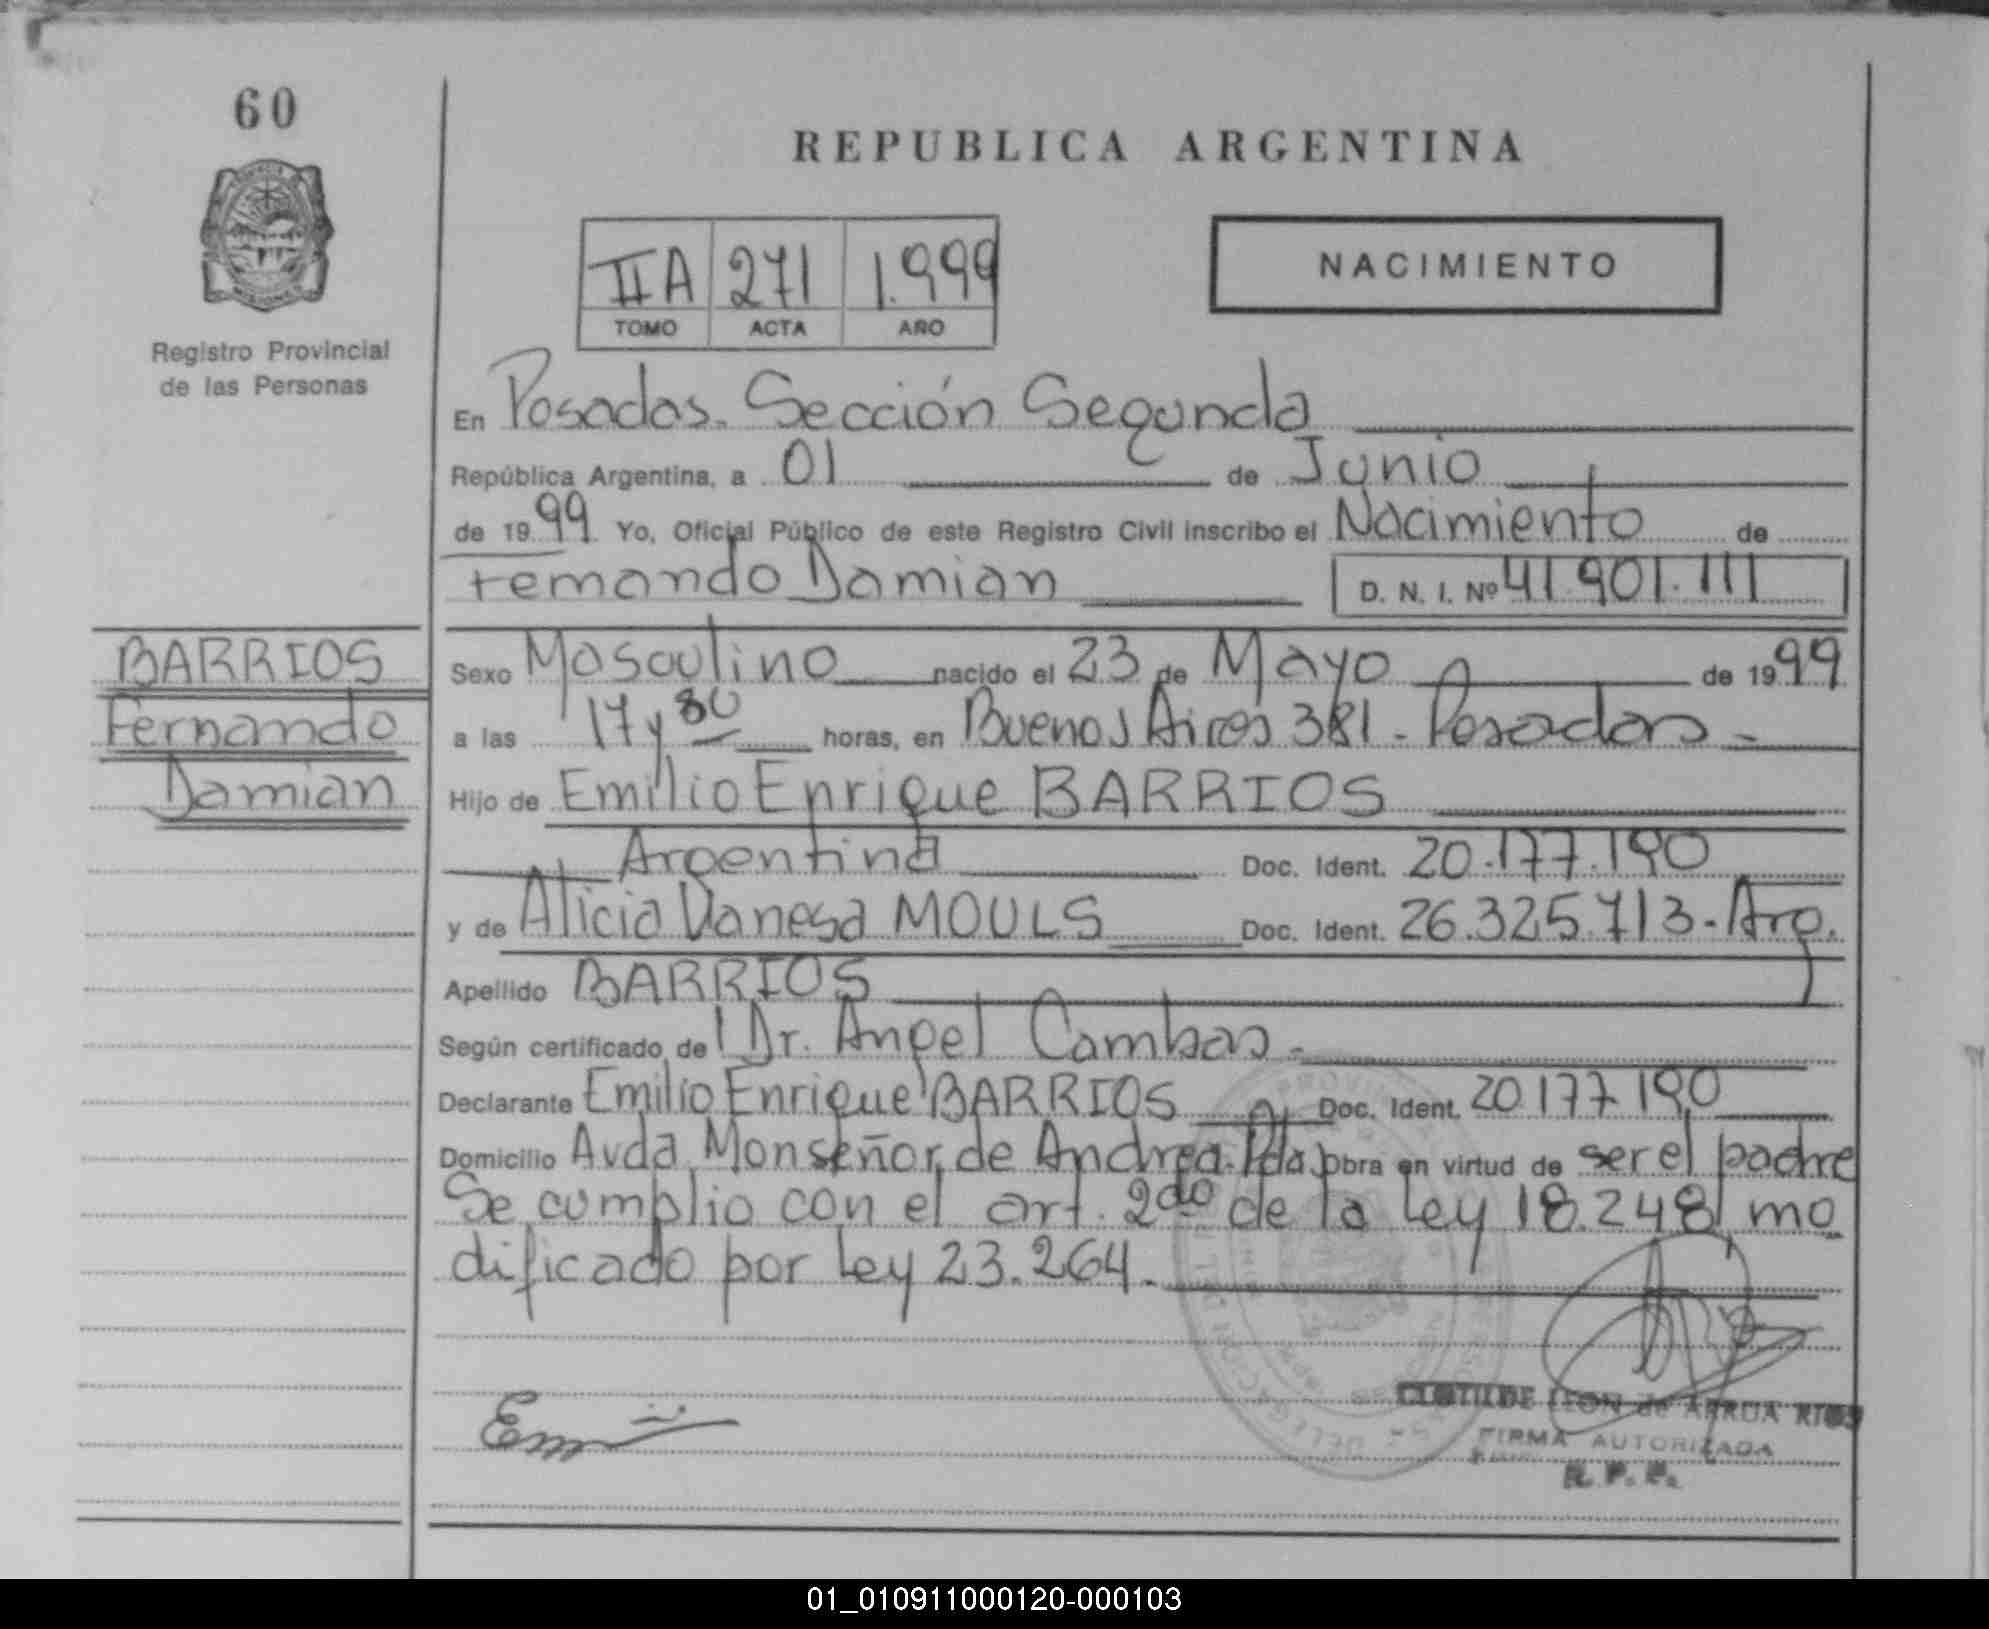 60
REPUBLICA ARGENTINA
IIA 271 1.999
TOMO ACTA AÑO
NACIMIENTO
Registro Provincial
de las Personas
En Posadas. Sección Segunda
República Argentina, a 01 de Junio
de 1999 Yo, Oficial Público de este Registro Civil inscribo el Nacimiento de
Fernando Damian D. N. I. Nº 41.901.111
BARRIOS
Fernando
Damian
Sexo Masculino nacido el 23 de Mayo de 1999
a las 17 y 30 horas, en Buenos Aires 381 - Posadas -
Hijo de Emilio Enrique BARRIOS
Argentina Doc. Ident. 20.177.190
y de Alicia Vanesa MOULS Doc. Ident. 26.325.713 - Arg.
Apellido BARRIOS
Según certificado de l Dr. Angel Cambas -
Declarante Emilio Enrique BARRIOS Doc. Ident. 20.177.190
Domicilio Avda. Monseñor de Andrea. Pdas Obra en virtud de ser el padre
Se cumplio con el art. 2do de la Ley 18.248, mo
dificado por Ley 23.264.
CLOTILDE LEON de ARRUA RIOS
FIRMA AUTORIZADA
R. P. P.
01_010911000120-000103